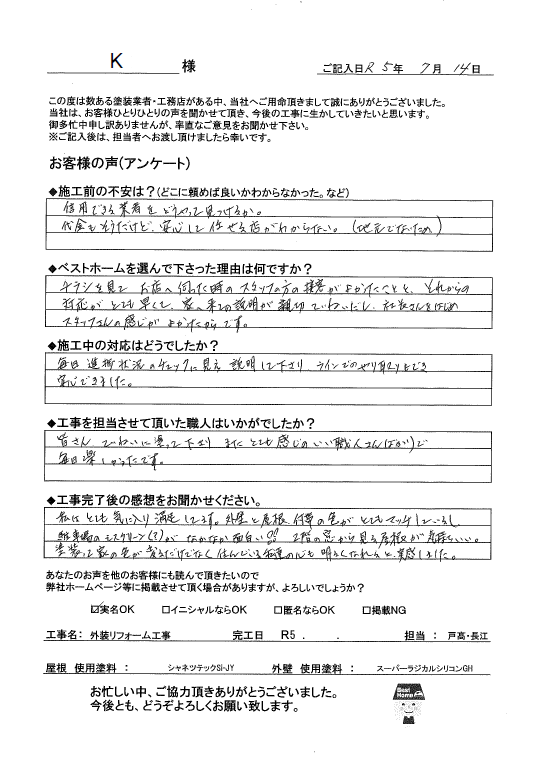 K 様
ご記入日 R 5年 7月 14日
この度は数ある塗装業者・工務店がある中、当社へご用命頂きまして誠にありがとうございました。
当社は、お客様ひとりひとりの声を聞かせて頂き、今後の工事に生かしていきたいと思います。
御多忙中申し訳ありませんが、率直なご意見をお聞かせ下さい。
※ご記入後は、担当者へお渡し頂けましたら幸いです。
お客様の声(アンケート)
◆施工前の不安は?(どこに頼めば良いかわからなかった。など)
信用できる業者をどうやって見つけるか。
代金もそうだけど、安心して任せる店がわからない。(地元でないため)
◆ベストホームを選んで下さった理由は何ですか?
チラシを見て お店へ伺った時のスタッフの方の接客がよかったことと、それからの
対応がとても早くて、家へ来ての説明が親切でていねいだし、社長さんをはじめ
スタッフさんの感じがよかったからです。
◆施工中の対応はどうでしたか?
毎日進捗状況のチェックに見え 説明して下さり ラインでのやり取りもでき
安心できました。
◆工事を担当させて頂いた職人はいかがでしたか?
皆さん ていねいに塗って下さり またとても感じのいい職人さんばかりで
毎日楽しかったです。
◆工事完了後の感想をお聞かせください。
私は とても気に入り満足してます。外壁と屋根、付帯の色がとてもマッチしているし、
駐車場のモスグリーン(?)がなかなか面白い!! 2階の窓から見る屋根が素晴しい。
塗装って家の色が変るだけでなく 住んでいる 心も 明るくなれると、実感しました。
あなたのお声を他のお客様にも読んで頂きたいので
弊社ホームページ等に掲載させて頂く場合がありますが、よろしいでしょうか?
☑実名OK □イニシャルならOK □匿名ならOK □掲載NG
工事名: 外装リフォーム工事 完工日 R5 . . 担当: 戸高・長江
屋根 使用塗料: シャネツテックSi-JY 外壁 使用塗料: スーパーラジカルシリコンGH
お忙しい中、ご協力頂きありがとうございました。
今後とも、どうぞよろしくお願い致します。
Best
Home